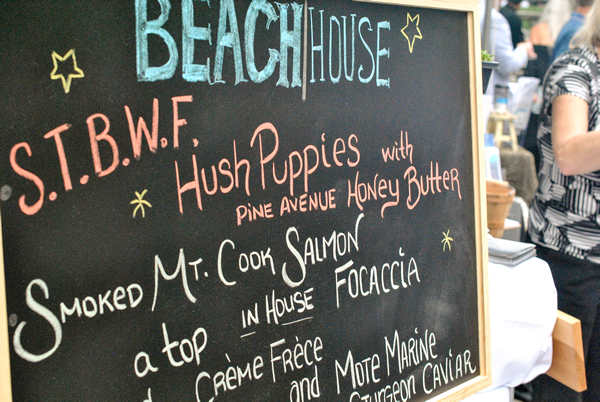 BEACH HOUSE
S.T.B.W.F.
Hush Puppies with
PINE AVENUE Honey Butter
Smoked Mt. Cook Salmon
a top IN HOUSE FOCACCIA
CRÈME FRÈCE
and MOTE MARINE
Sturgeon CAVIAR